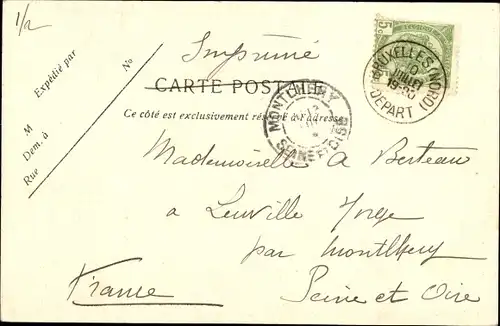 1/2
Expédié par
No
M
Dem. à
Rue
Imprimé
CARTE POSTALE
Ce côté est exclusivement réservé à l'adresse
5c
BRUXELLES (NORD)
10
19-20
DEPART
MONTLHERY
SEINE ET OISE
Mademoiselle A Berteau
a Leuville s/orge
par Montlhery
France
Seine et Oise